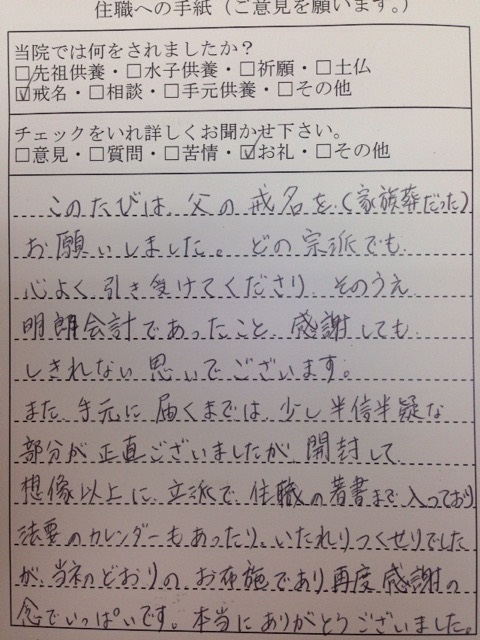 住職への手紙（ご意見を願います。）
当院では何をされましたか？
□先祖供養・□水子供養・□祈願・□土仏
☑戒名・□相談・□手元供養・□その他
チェックをいれ詳しくお聞かせ下さい。
□意見・□質問・□苦情・☑お礼・□その他
このたびは、父の戒名を、（家族葬だった）
お願いしました。どの宗派でも、
心よく引き受けてくださり、そのうえ
明朗会計であったこと、感謝しても
しきれない思いでございます。
また、手元に届くまでは、少し半信半疑な
部分が正直ございましたが、開封して
想像以上に、立派で、住職の著書まで入っており
法要のカレンダーもあったり、いたれりつくせりでした
が、当初のどおりの、お布施であり再度感謝の
念でいっぱいです。本当にありがとうございました。